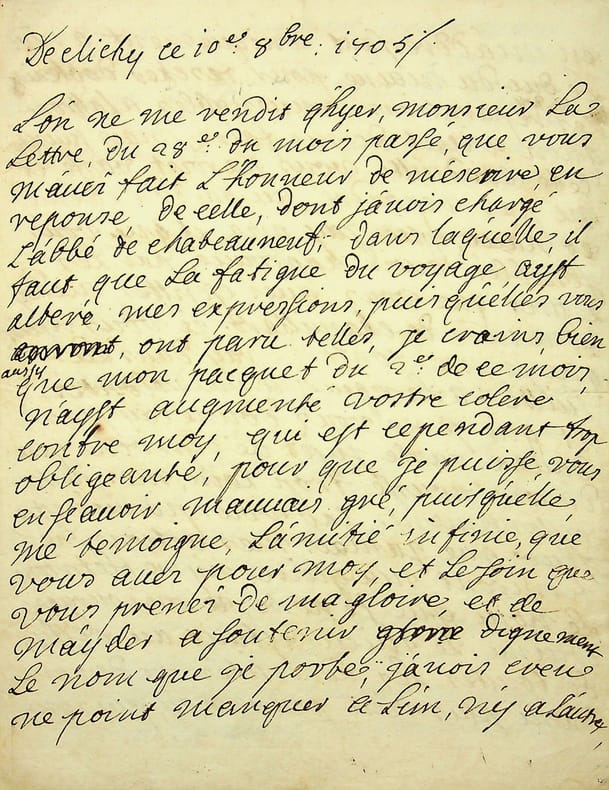 De clichy ce 10e 8bre. 1705/
Lón ne me rendit q'hyer, monsieur La
Lettre, du 28e. du mois passé, que vous
m'auéz fait L'honneur de m'éscrire, en
reponse de celle, dont j'áuois chargé
L'ábbé de chateauneuf, dans laquélle, il
faut que La fatigue du voyage ayst
alteré, mes expressions, puisqu'élles vous
ont paru telles, je crains bien
aussy
que mon pacquet du 2e. de ce mois,
n'ayst augmenté vostre colere
contre moy, qui est cependant trop
obligeante, pour que je puisse, vous
en scauoir mauuais gré, puisqu'élle
mé temoigne, L'ámitié infinie, que
vous auez pour moy, et Le soin que
vous prenéz de ma gloire, et de
m'áyder a soutenir gloire dignement
Le nom que je porte, j'áuois creu
ne point manquer a L'un, ny a L'autre,